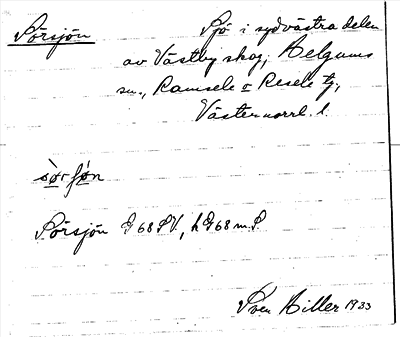 Sörsjön Sjö i sydvästra delen
av Västby skog, Helgums
sn., Ramsele o Resele tg,
Västernorrl. l.
Sörsjön G 68 SV, h G 68 m.S.
Sven Hiller 1933